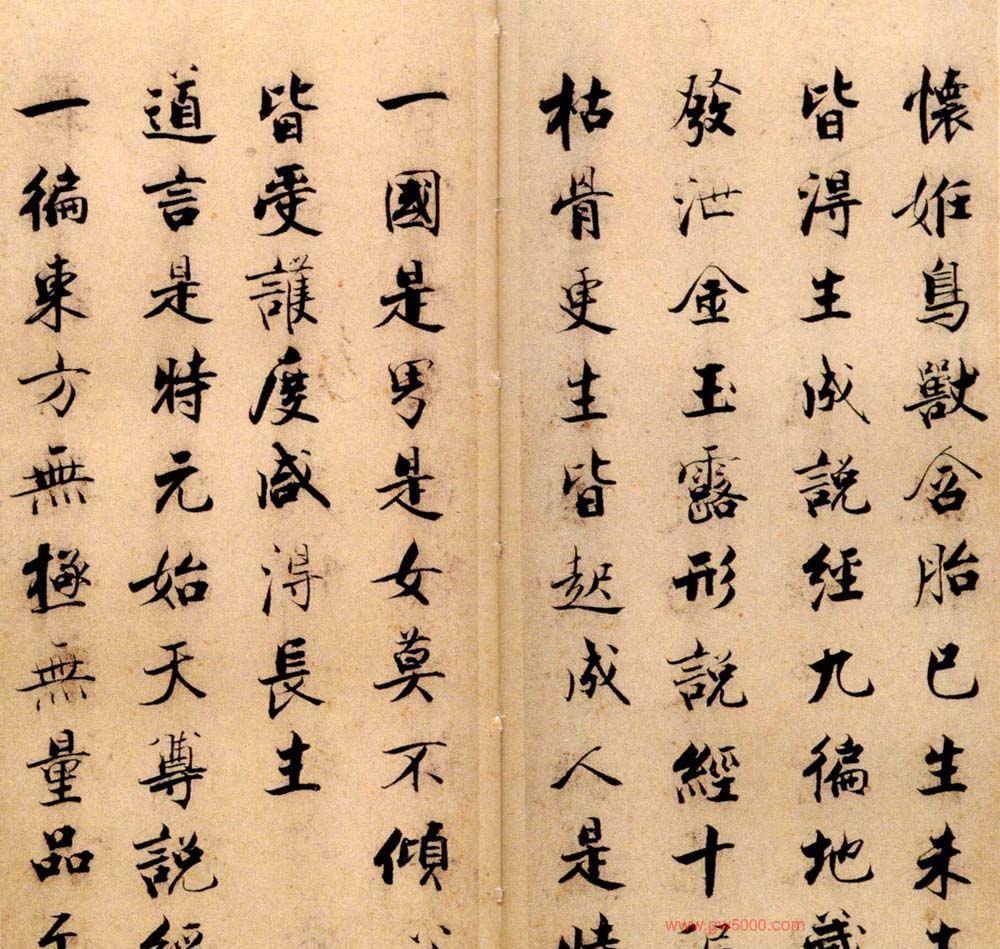 懷妊鳥獸含胎已生未生
皆得生成說經九徧地藏
發泄金玉露形說經十徧
枯骨更生皆起成人是時
一國是男是女莫不傾心
皆受護度咸得長生
道言是時元始天尊說經
一徧東方無極無量品
www.gw5000.com